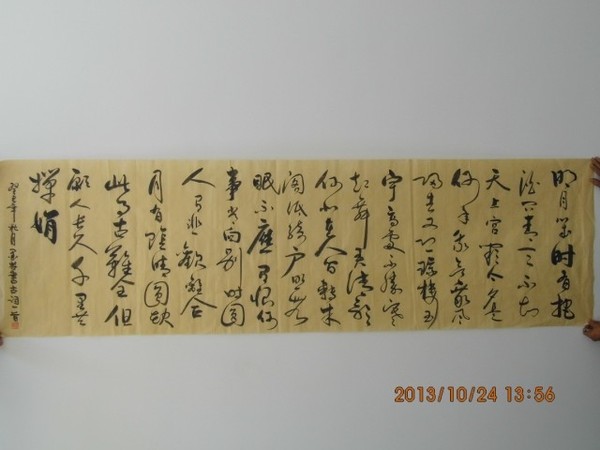 明月幾时有把
酒问青天不知
天上宫闕今夕是
何年我欲乘风
归去又恐瓊楼玉
宇高處不勝寒
起舞弄清影
何似在人间轉朱
阁低綺户照无
眠不應有恨何
事长向别时圆
人有悲歡離合
月有陰晴圆缺
此事古難全但
願人长久千里共
嬋娟
癸巳年秋月書古词一首
2013/10/24 13:56